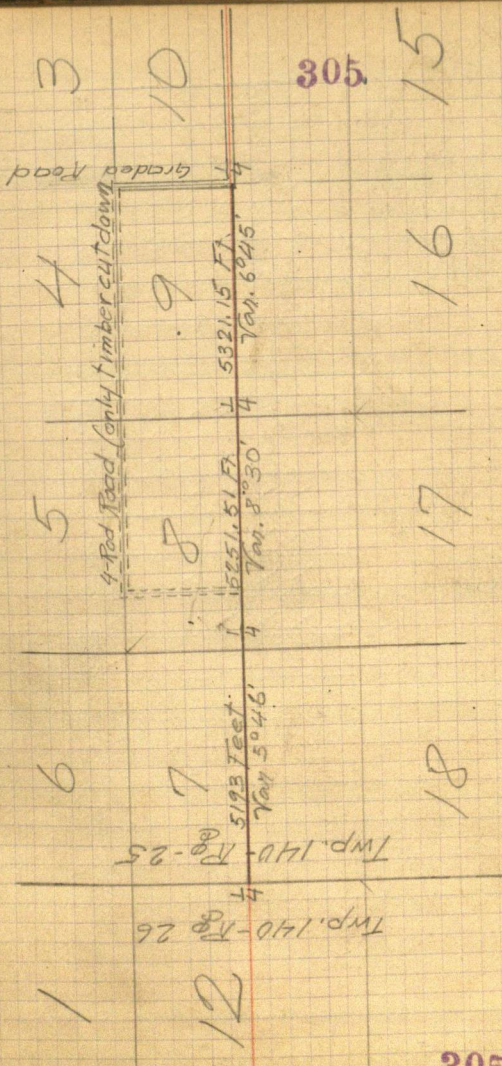 305.
3
10
15
Graded Road
4
9
16
4-Rod Road (only timber cut down)
1/4
5321.15 Ft.
Var. 6°45'
1/4
5
8
17
5251.51 Ft.
Var. 8°30'
1/4
6
7
18
5193 Feet
Var 5°46'
Twp. 140 - Rg - 25
1/4
Twp. 140 - Rg 26
1
12
305